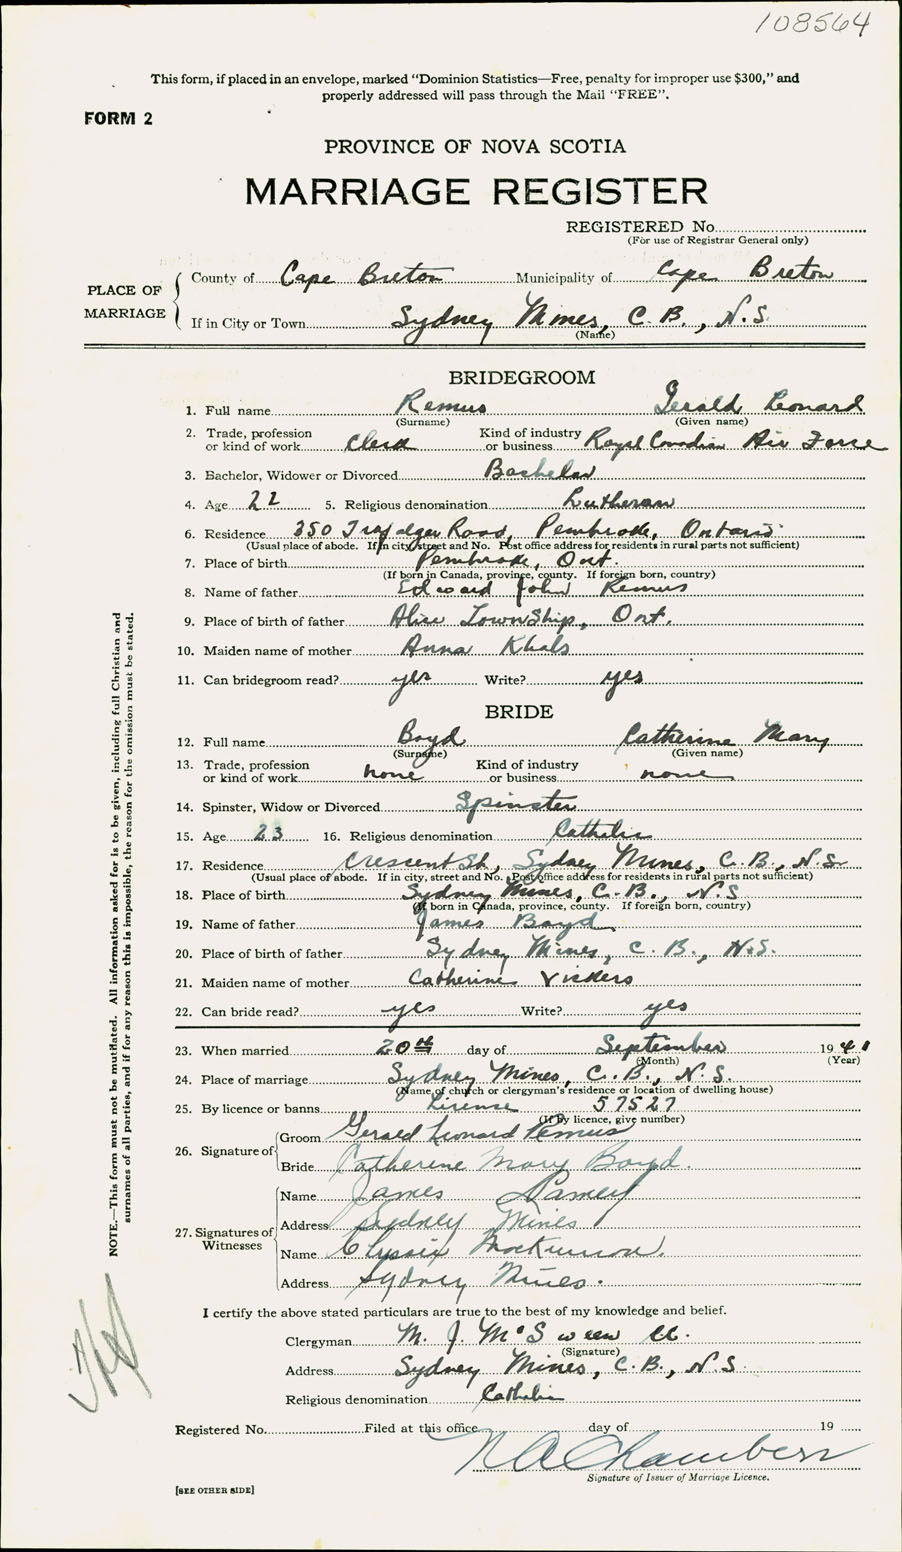 108564
This form, if placed in an envelope, marked "Dominion Statistics—Free, penalty for improper use $300," and
properly addressed will pass through the Mail "FREE".
FORM 2
PROVINCE OF NOVA SCOTIA
MARRIAGE REGISTER
REGISTERED No.
(For use of Registrar General only)
PLACE OF MARRIAGE
County of Cape Breton Municipality of Cape Breton
If in City or Town Sydney Mines, C. B., N.S.
(Name)
BRIDEGROOM
1. Full name Remus Gerald Leonard
(Surname) (Given name)
2. Trade, profession or kind of work Clerk Kind of industry or business Royal Canadian Air Force
3. Bachelor, Widower or Divorced Bachelor
4. Age 22 5. Religious denomination Lutheran
6. Residence 350 Trafalgar Road, Pembroke, Ontario
(Usual place of abode. If in city, street and No. Post office address for residents in rural parts not sufficient)
7. Place of birth Pembroke, Ont.
(If born in Canada, province, county. If foreign born, country)
8. Name of father Edward John Remus
9. Place of birth of father Alice TownShip, Ont.
10. Maiden name of mother Anna
11. Can bridegroom read? yes Write? yes
BRIDE
12. Full name Boyd Catherine Mary
(Surname) (Given name)
13. Trade, profession or kind of work none Kind of industry or business none
14. Spinster, Widow or Divorced Spinster
15. Age 23 16. Religious denomination Catholic
17. Residence Crescent St., Sydney Mines, C.B., N.S.
(Usual place of abode. If in city, street and No. Post office address for residents in rural parts not sufficient)
18. Place of birth Sydney Mines, C. B., N.S
(If born in Canada, province, county. If foreign born, country)
19. Name of father James Boyd
20. Place of birth of father Sydney Mines, C. B., N.S.
21. Maiden name of mother Catherine Vickers
22. Can bride read? yes Write? yes
23. When married 20th day of September 1941
(Month) (Year)
24. Place of marriage Sydney Mines, C.B., N.S.
(Name of church or clergyman's residence or location of dwelling house)
25. By licence or banns License 57527
(If by licence, give number)
26. Signature of
Groom Gerald Leonard Remus
Bride Catherine Mary Boyd.
27. Signatures of Witnesses
Name James
Address Sydney Mines
Name
Address Sydney Mines.
I certify the above stated particulars are true to the best of my knowledge and belief.
Clergyman M. J. McSween
(Signature)
Address Sydney Mines, C.B., N.S.
Religious denomination Catholic
Registered No. Filed at this office day of 19
N A Chambers
Signature of Issuer of Marriage Licence.
[SEE OTHER SIDE]
NOTE.—This form must not be mutilated. All information asked for is to be given, including full Christian and
surnames of all parties, and if for any reason this is impossible, the reason for the omission must be stated.